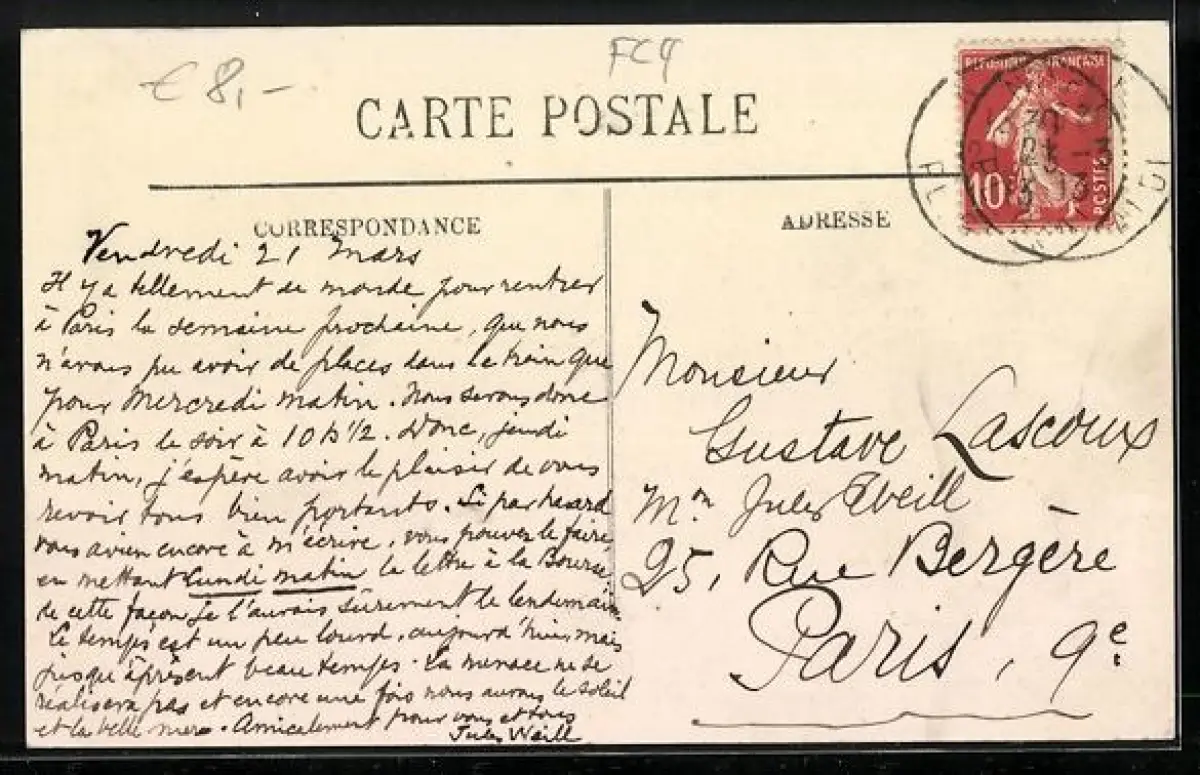 € 8,-
FC4
CARTE POSTALE
RÉPUBLIQUE FRANÇAISE
10
POSTES
CORRESPONDANCE
Vendredi 21 Mars
Il y a tellement de monde pour rentrer
à Paris la semaine prochaine, que nous
n'avons pu avoir de places dans le train que
pour Mercredi matin. Nous serons donc
à Paris le soir à 10h ½. Donc, jeudi
matin, j'espère avoir le plaisir de vous
revoir tous bien portants. Si par hasard
vous aviez encore à m'écrire, vous pouvez le faire
en mettant Lundi matin la lettre à la Bourse,
de cette façon je l'aurais sûrement le lendemain.
Le temps est un peu lourd, aujourd'hui, mais
jusqu'à présent beau temps. La menace ne se
réalisera pas et encore une fois nous aurons le soleil
et la belle mer. Amicalement pour vous et tous
Jules Weill
ADRESSE
Monsieur
Gustave Lascoux
Mon Jules Weill
25, Rue Bergère
Paris, 9e